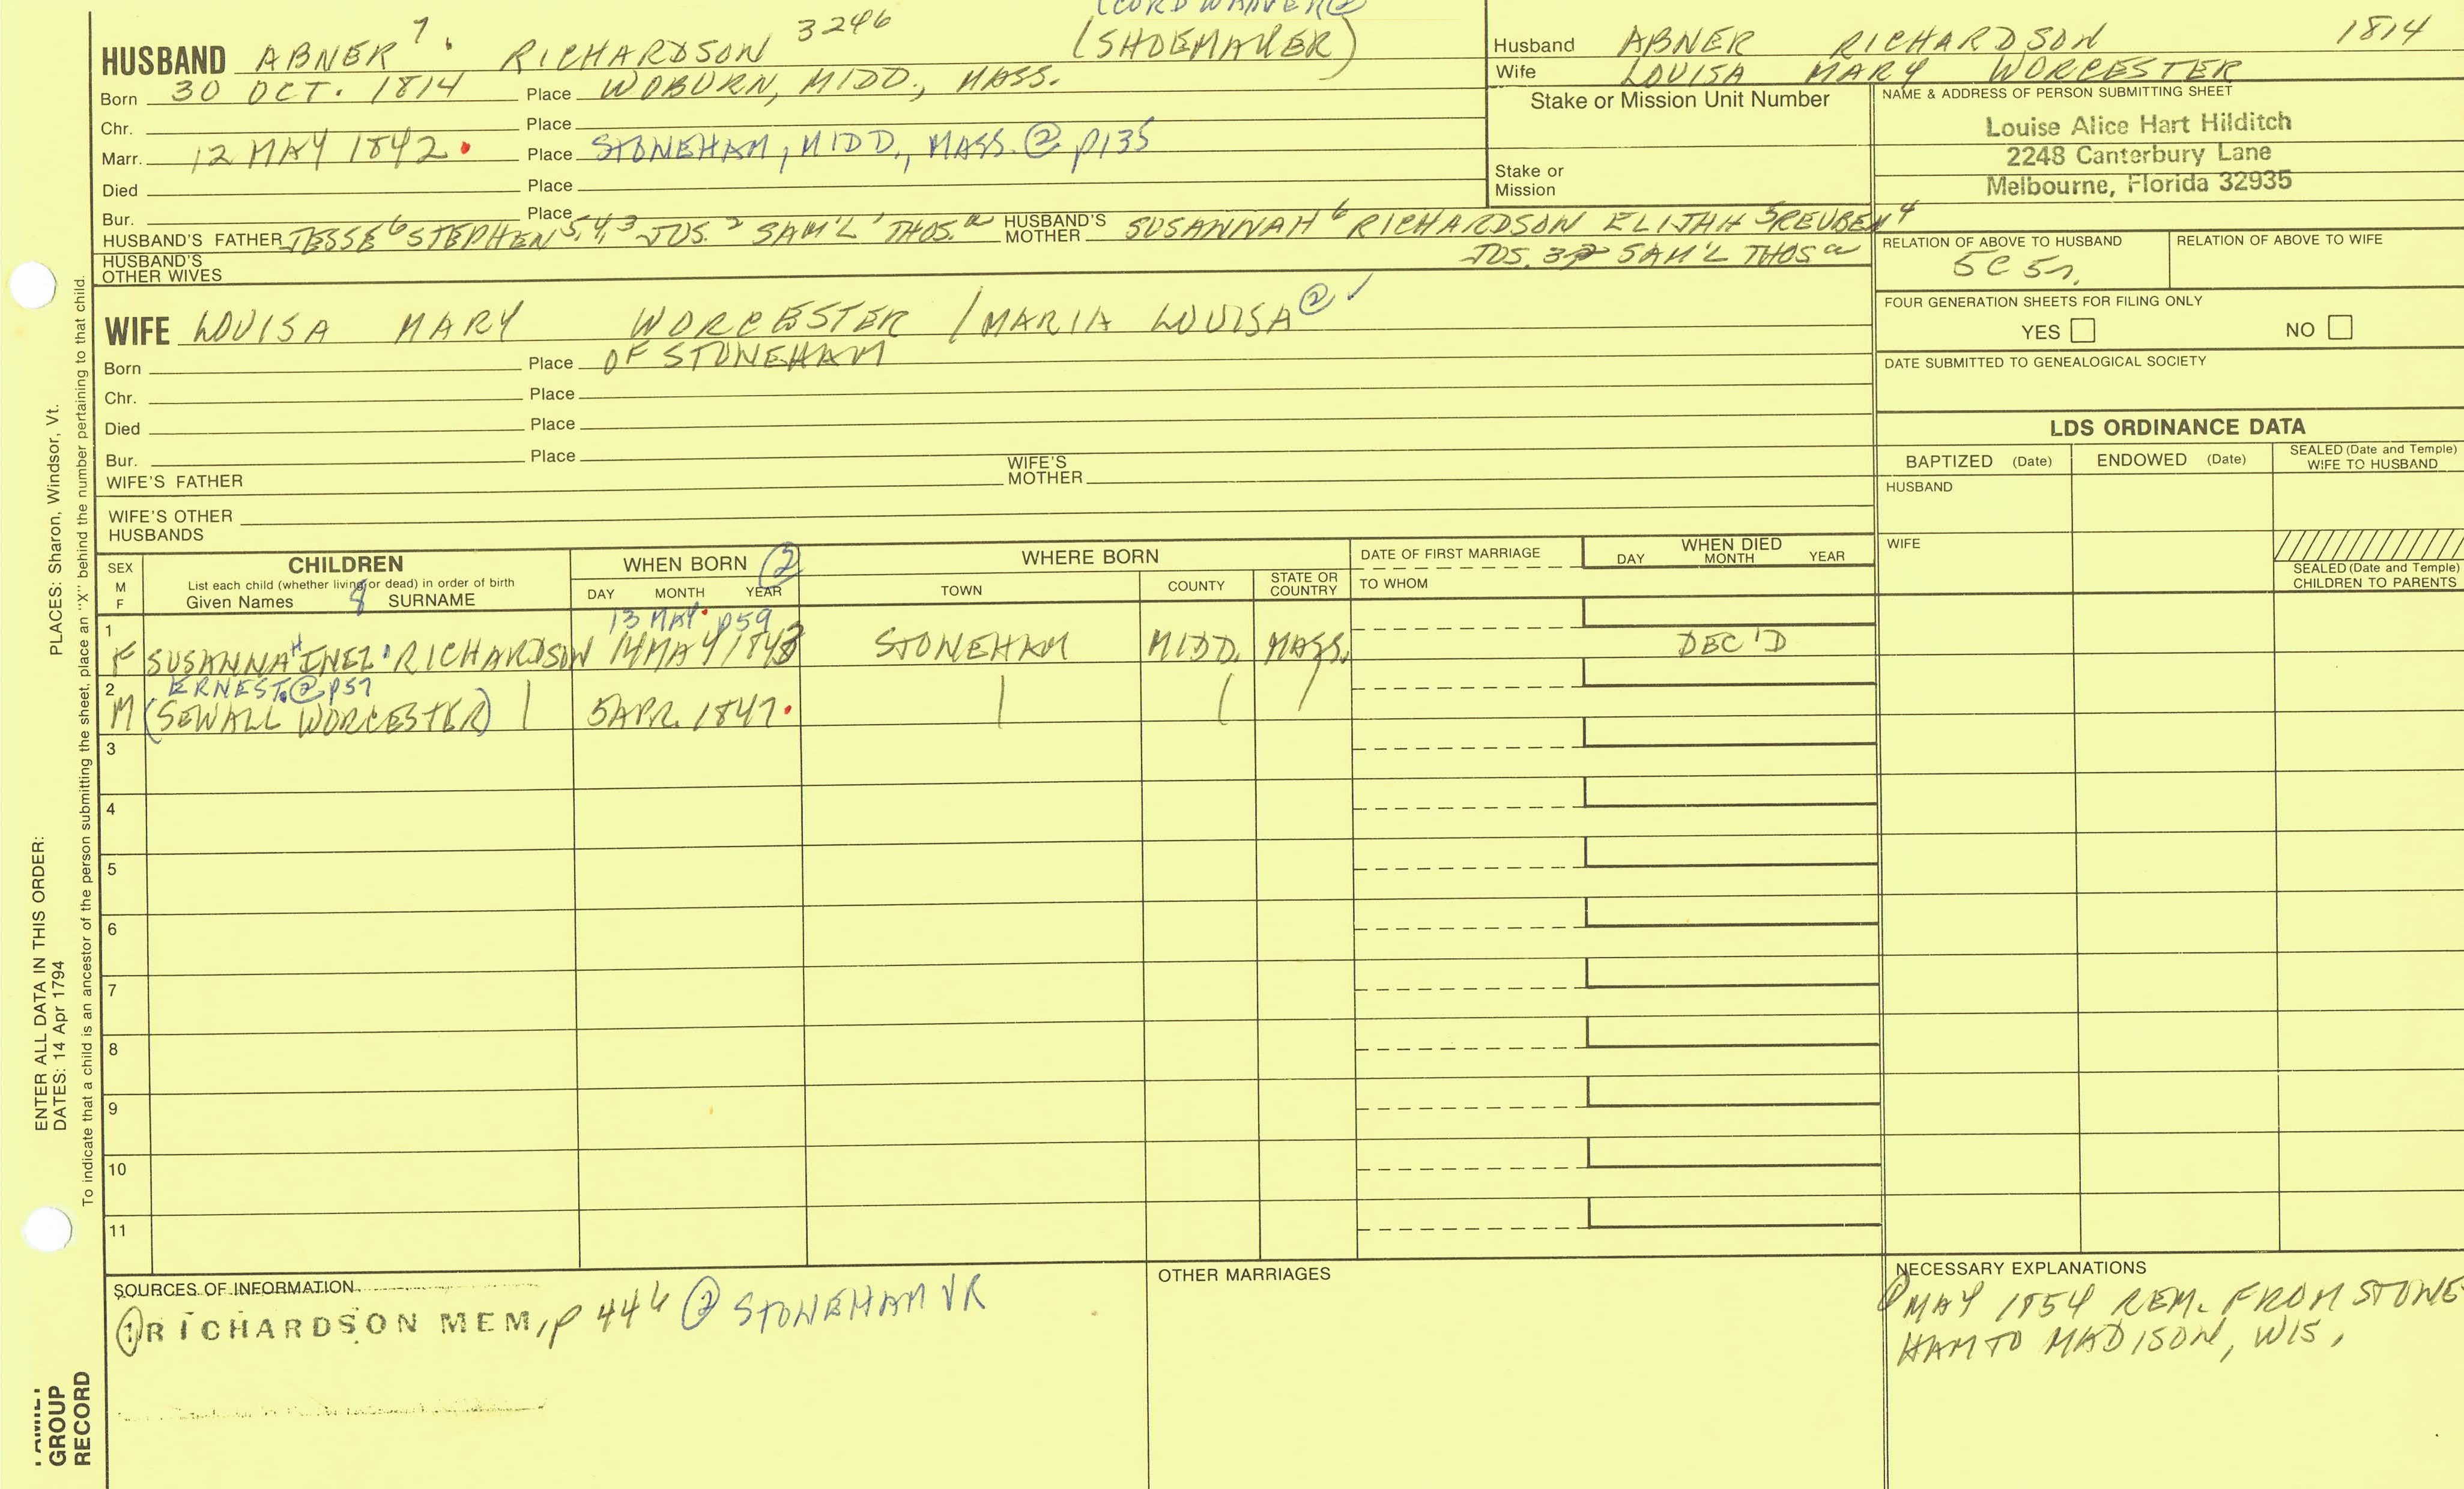 (CORDWAINER②
HUSBAND ABNER 7. RICHARDSON 3246 (SHOEMAKER)
Born 30 OCT. 1814 Place WOBURN, MIDD., MASS.
Chr. Place
Marr. 12 MAY 1842 Place STONEHAM, MIDD., MASS. ② p135
Died Place
Bur. Place
HUSBAND'S FATHER JESSE 6 STEPHEN 5,4,3 JOS. 2 SAM'L 1 THOS. a HUSBAND'S MOTHER SUSANNAH 6 RICHARDSON ELIJAH 5 REUBEN 4
JOS. 3,2 SAM'L THOS a
HUSBAND'S
OTHER WIVES
WIFE LOUISA MARY WORCESTER / MARIA LOUISA ② ✓
Born Place OF STONEHAM
Chr. Place
Died Place
Bur. Place
WIFE'S FATHER WIFE'S MOTHER
WIFE'S OTHER
HUSBANDS
Husband ABNER RICHARDSON 1814
Wife LOUISA MARY WORCESTER
Stake or Mission Unit Number
Stake or
Mission
NAME & ADDRESS OF PERSON SUBMITTING SHEET
Louise Alice Hart Hilditch
2248 Canterbury Lane
Melbourne, Florida 32935
RELATION OF ABOVE TO HUSBAND RELATION OF ABOVE TO WIFE
5C 5r.
FOUR GENERATION SHEETS FOR FILING ONLY
YES NO
DATE SUBMITTED TO GENEALOGICAL SOCIETY
LDS ORDINANCE DATA
BAPTIZED (Date) ENDOWED (Date) SEALED (Date and Temple)
WIFE TO HUSBAND
HUSBAND
WIFE
SEALED (Date and Temple)
CHILDREN TO PARENTS
SEX
M
F
CHILDREN
List each child (whether living or dead) in order of birth
Given Names 8 SURNAME
WHEN BORN ②
DAY MONTH YEAR
WHERE BORN
TOWN COUNTY STATE OR COUNTRY
DATE OF FIRST MARRIAGE
TO WHOM
WHEN DIED
DAY MONTH YEAR
13 MAY p59
1 F SUSANNA H INEZ RICHARDSON 14 MAY 1843 STONEHAM MIDD. MASS. DEC'D
ERNEST. ② p57
2 M (SEWALL WORCESTER) | 5 APR. 1847. | | |
3
4
5
6
7
8
9
10
11
SOURCES OF INFORMATION
① RICHARDSON MEM, p 446 ② STONEHAM VR
OTHER MARRIAGES
NECESSARY EXPLANATIONS
MAY 1854 REM. FROM STONE-
HAM TO MADISON, WIS.
PLACES: Sharon, Windsor, Vt.
ENTER ALL DATA IN THIS ORDER:
DATES: 14 Apr 1794
To indicate that a child is an ancestor of the person submitting the sheet, place an "X" behind the number pertaining to that child.
FAMILY
GROUP
RECORD